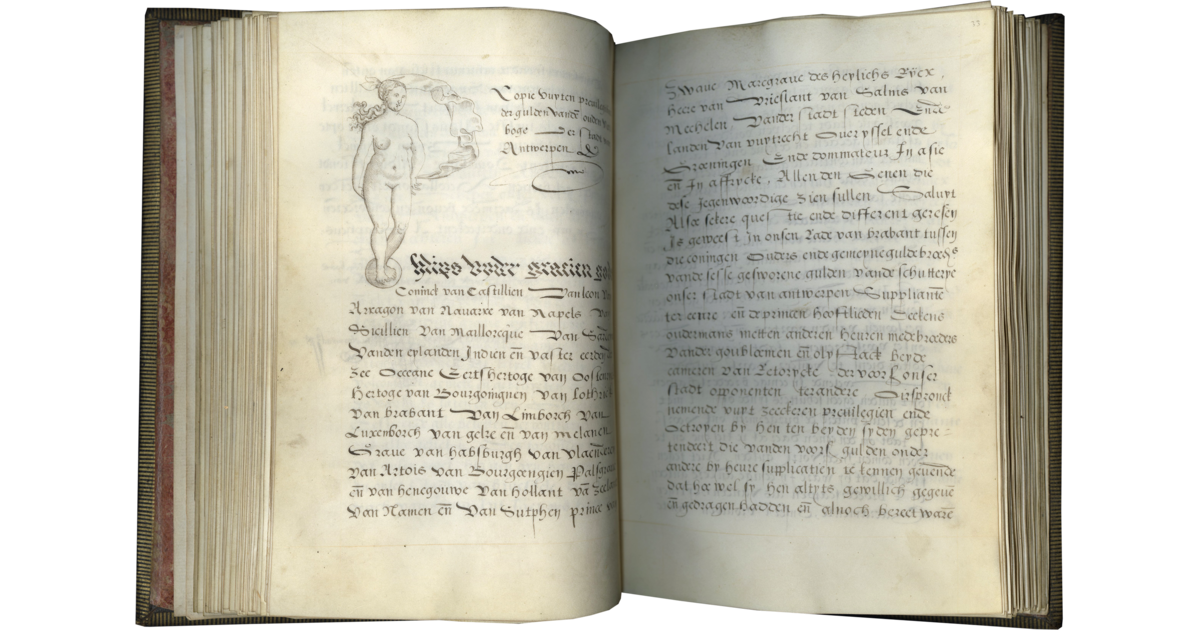 Copie vuyten previleg
der gulden vanden ouden
boge der stadt
Antwerpen
Philips by der gracien go
Coninck van Castillien Van leon
Arragon van Nauarre van Napels
Sicillien Van Maillorcque Van Sar
Vanden eylanden Indien en̄ vaster eerden
Zee Occeane Eertshertoge van Oosten
Hertoge van Bourgoingnen van Lothr
Van brabant Van Limborch Van
Luxenborch van gelre en̄ van melanen
Graue van habsburgh van vlaender
van Artois van Bourgoengien Palsgra
en̄ van henegouwe Van hollant vā zeelan
Van Namen en̄ Van Sutphen prince v
33
Zwaue Marcgraue des heylichs Rycx,
heere van Vrieslant van Salins van
Mechelen, Vander stadt steden Ende
landen Van vuytrecht Oueryssel ende
Groeningen Ende dommateur In asie
en̄ In affrycke, Allen den Genen die
dese Jegenwoordige zien sullen Saluyt
Alsoe sekere questie ende different geresen
Is geweest In onsen Rade van brabant tussen
die coningen Ouders ende gemeyne guldebroeds
vande sesse gesworene gulden vande schutterye
onser stadt van antwerpen Suppliantē
ter eenre, en̄ deprincen hooftlieden Deckens
oudermans metten anderen heuren medebroeders
Vander goubloemen en̄ olyftack beyde
cameren van Retorycke der voors onser
stadt opponenten terandere Oirspronck
nemende vuyt zeeckeren preuilegien ende
Octroyen by Hen ten beyden syden gepre=
tendeert die vanden voors gulden onder
andere by heure supplicatien te kennen geuende
dat hoewel sy hen altyts gewillich gegeuē
en̄ gedragen hadden en̄ alnoch bereet warē